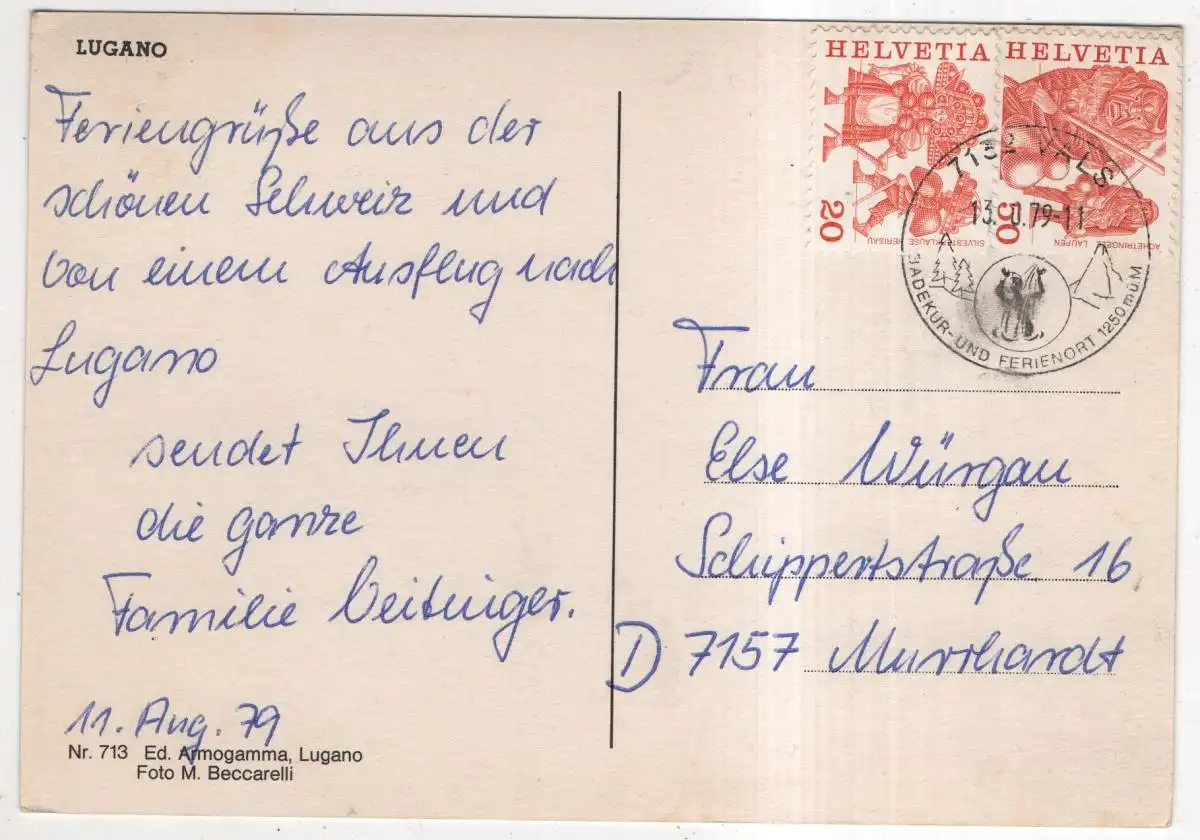 LUGANO
Feriengrüße aus der
schönen Schweiz und
von einem Ausflug nach
Lugano
sendet Ihnen
die ganze
Familie Veitinger.
11. Aug. 79
Nr. 713 Ed. Armogamma, Lugano
Foto M. Beccarelli
HELVETIA
20
SILVESTERKLÄUSE HERISAU
HELVETIA
50
ACHETRINGELE LAUPEN
7132 VALS
79-11
BADEKUR- UND FERIENORT 1250 m ü.M
Frau
Else Würgau
Schippertstraße 16
D 7157 Murrhardt